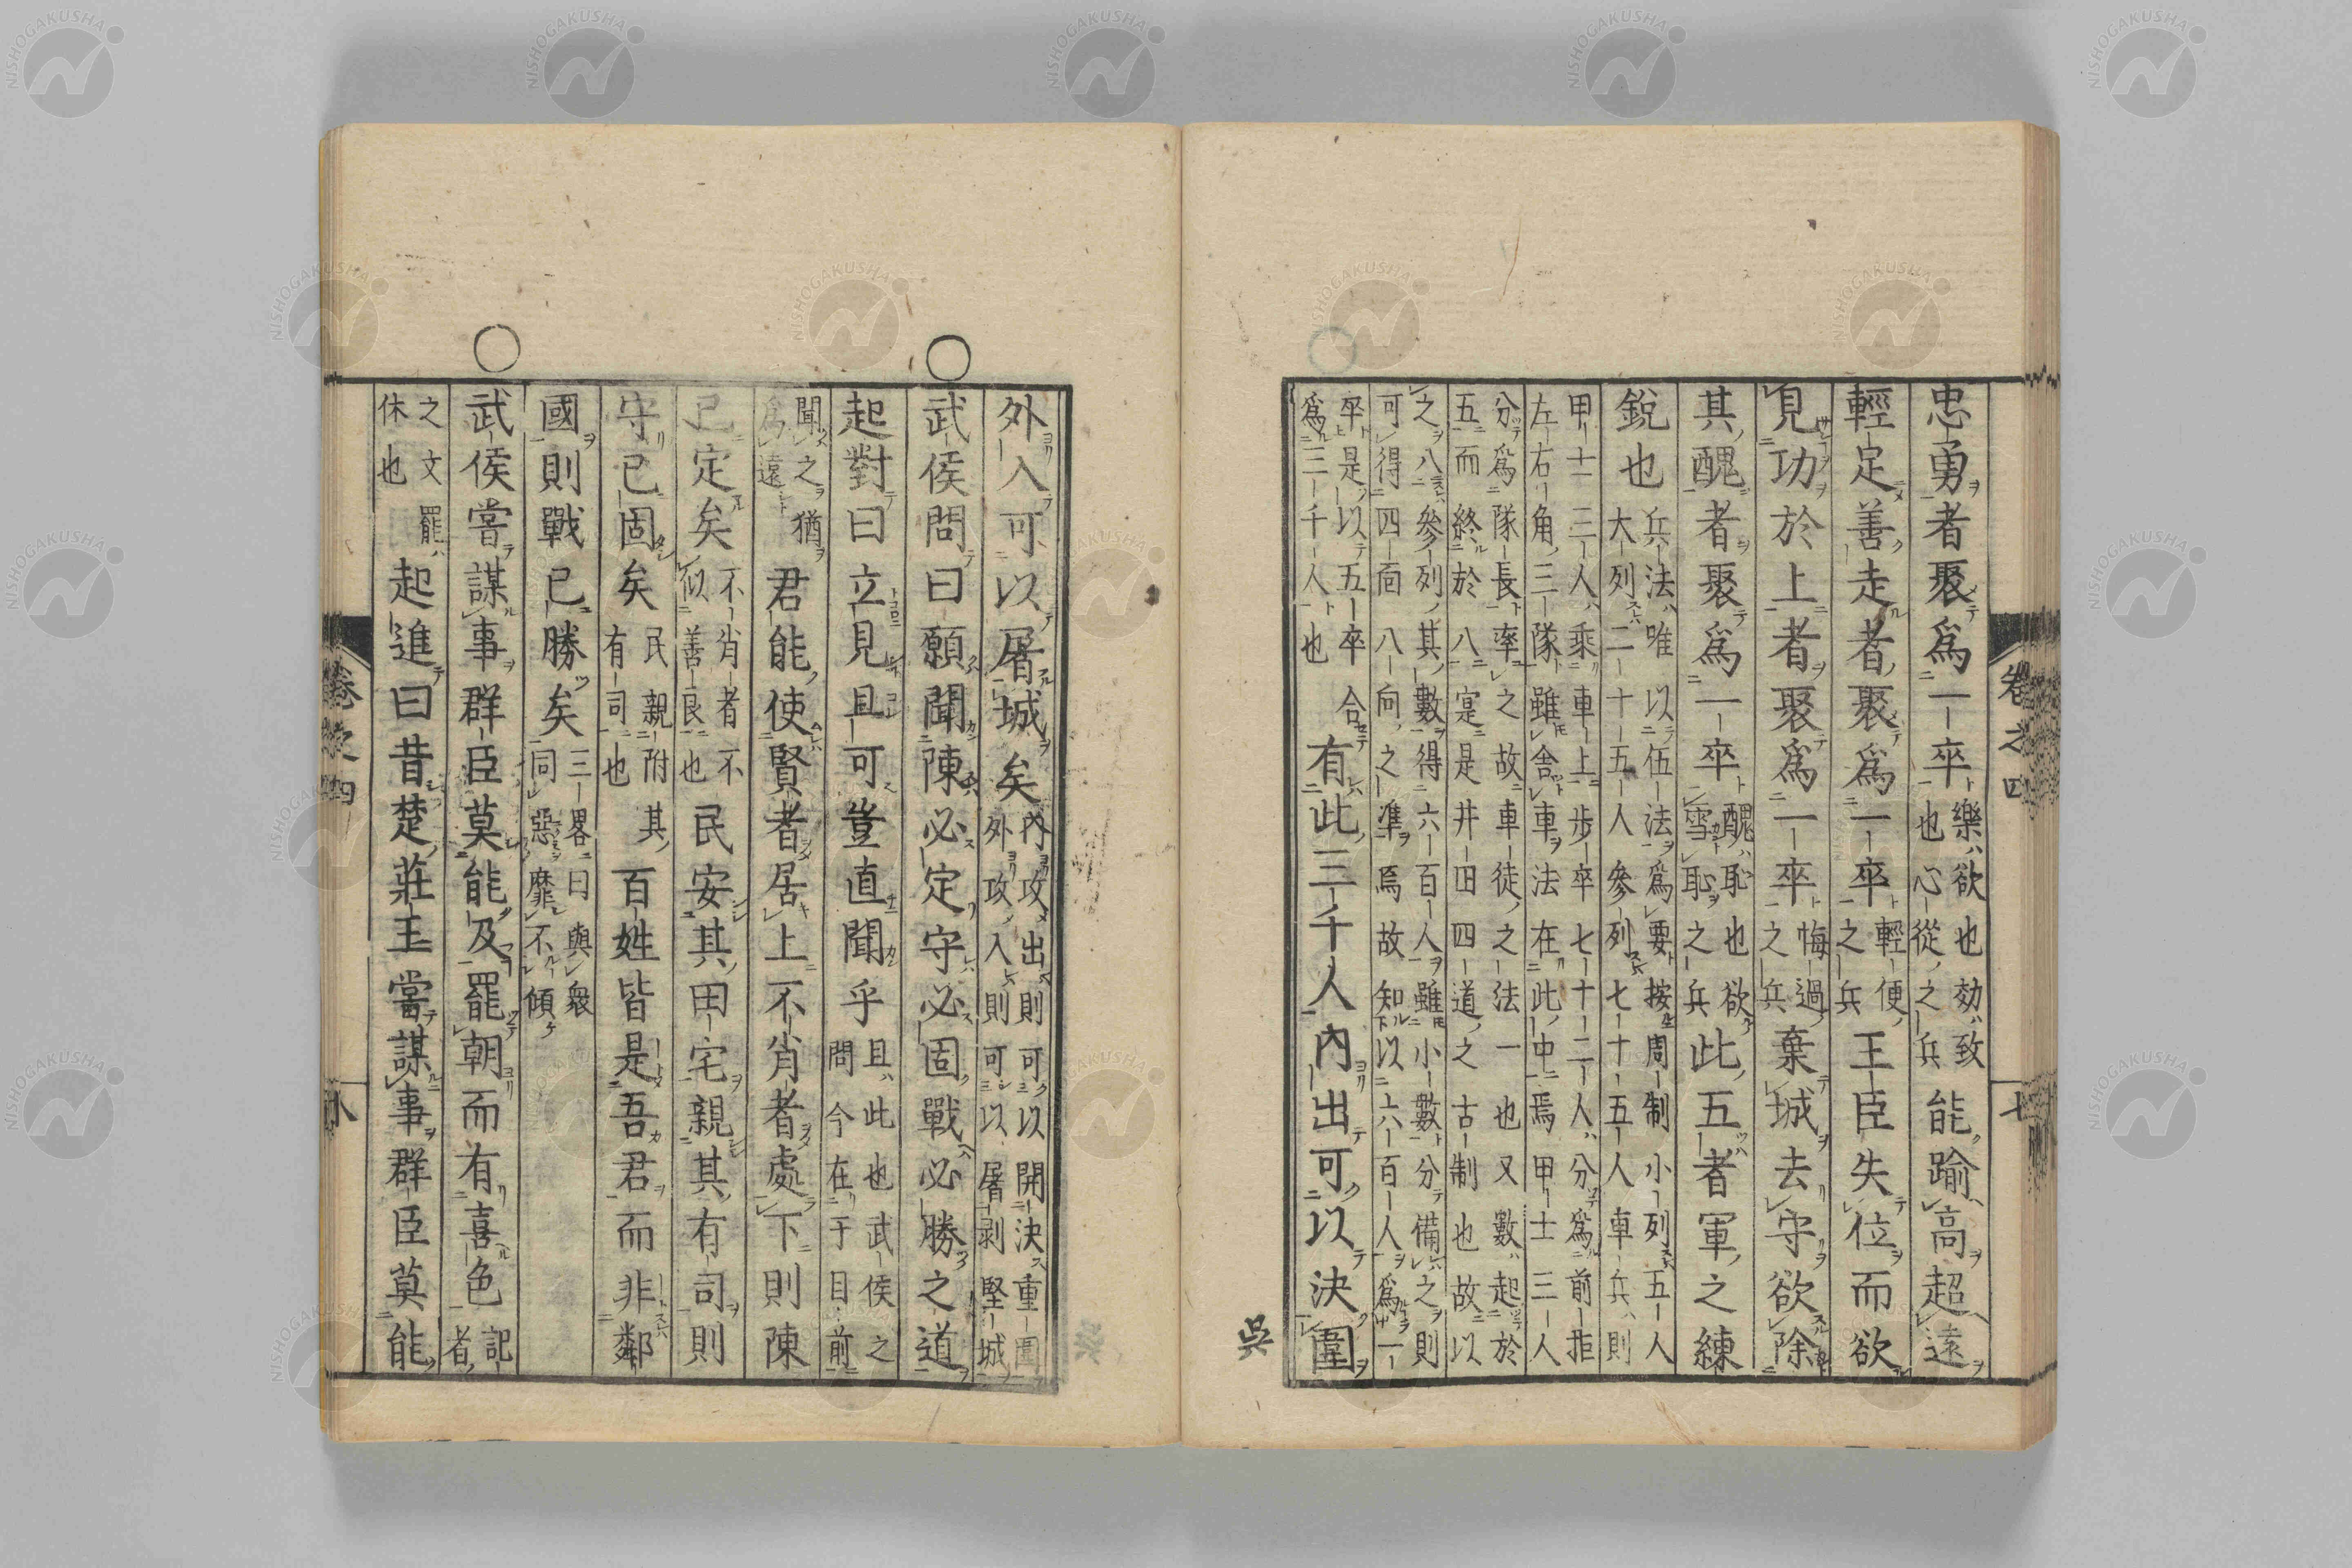 卷之四 七
忠勇者聚爲一卒樂欲也効致
也心從之兵能踰高超遠
輕足善走者聚爲一卒輕便
之兵王臣失位而欲
見功於上者聚爲一卒悔過
之兵棄城去守欲除
其醜者聚爲一卒醜恥也欲
雪恥之兵此五者軍之練
銳也兵法唯以伍法爲要按周制小列五人
大列二十五人參列七十五人車兵則
甲士三人乘車上步卒七十二人分爲前拒
左右角三隊雖舍車法在此中焉甲士三人
分爲隊長率之故車徒之法一也又數起於
五而終於八寔是井田四道之古制也故以
之八參列其數得六百人雖小數分備之則
可得四面八向之準焉故知以六百人爲一
卒是以五卒合
爲三千人也有此三千人內出可以決圍
吳
外入可以屠城矣內攻出則可以開決重圍
外攻入則可以屠剥堅城
武侯問曰願聞陳必定守必固戰必勝之道
起對曰立見且可豈直聞乎且此也武侯之
問今在于目前
聞之猶
爲遠君能使賢者居上不肖者處下則陳
已定矣不肖者不
似善良也民安其田宅親其有司則
守已固矣民親附其
有司也百姓皆是吾君而非鄰
國則戰已勝矣三畧曰與衆
同惡靡不傾
武侯嘗謀事群臣莫能及罷朝而有喜色記
者
之文罷
休也起進曰昔楚莊王嘗謀事群臣莫能
卷之四 八